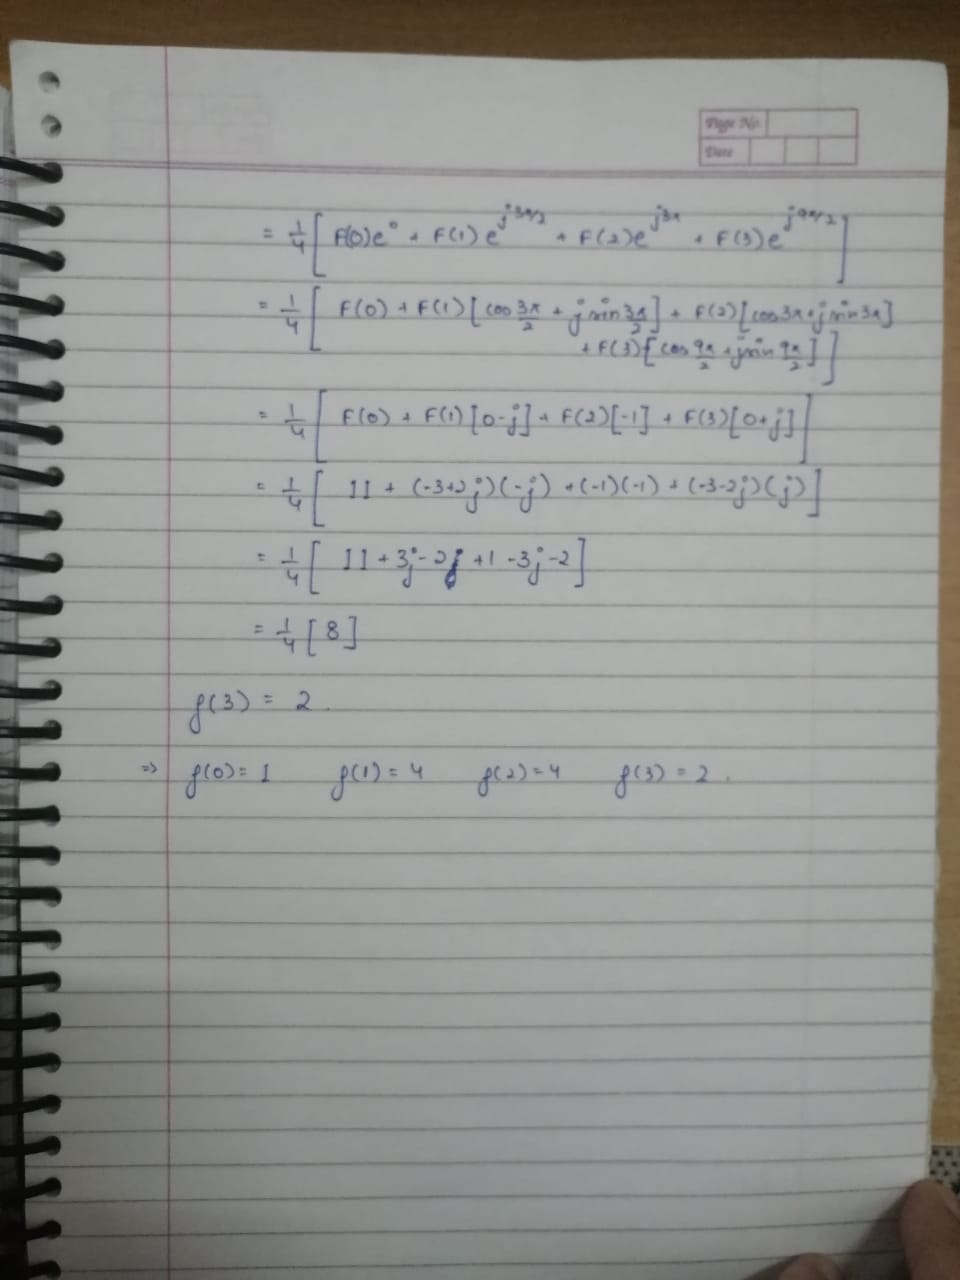 Page No.
Date
= 1/4 [ F(0)e^0 + F(1) e^{j3π/2} + F(2)e^{j3π} + F(3)e^{j9π/2} ]
= 1/4 [ F(0) + F(1) [cos 3π/2 + j sin 3π/2] + F(2)[cos 3π + j sin 3π]
+ F(3)[cos 9π/2 + j sin 9π/2] ]
= 1/4 [ F(0) + F(1) [0-j] + F(2)[-1] + F(3)[0+j] ]
= 1/4 [ 11 + (-3+2j)(-j) + (-1)(-1) + (-3-2j)(j) ]
= 1/4 [ 11 + 3j - 2 + 1 - 3j - 2 ]
= 1/4 [ 8 ]
f(3) = 2.
=> f(0) = 1 f(1) = 4 f(2) = 4 f(3) = 2.